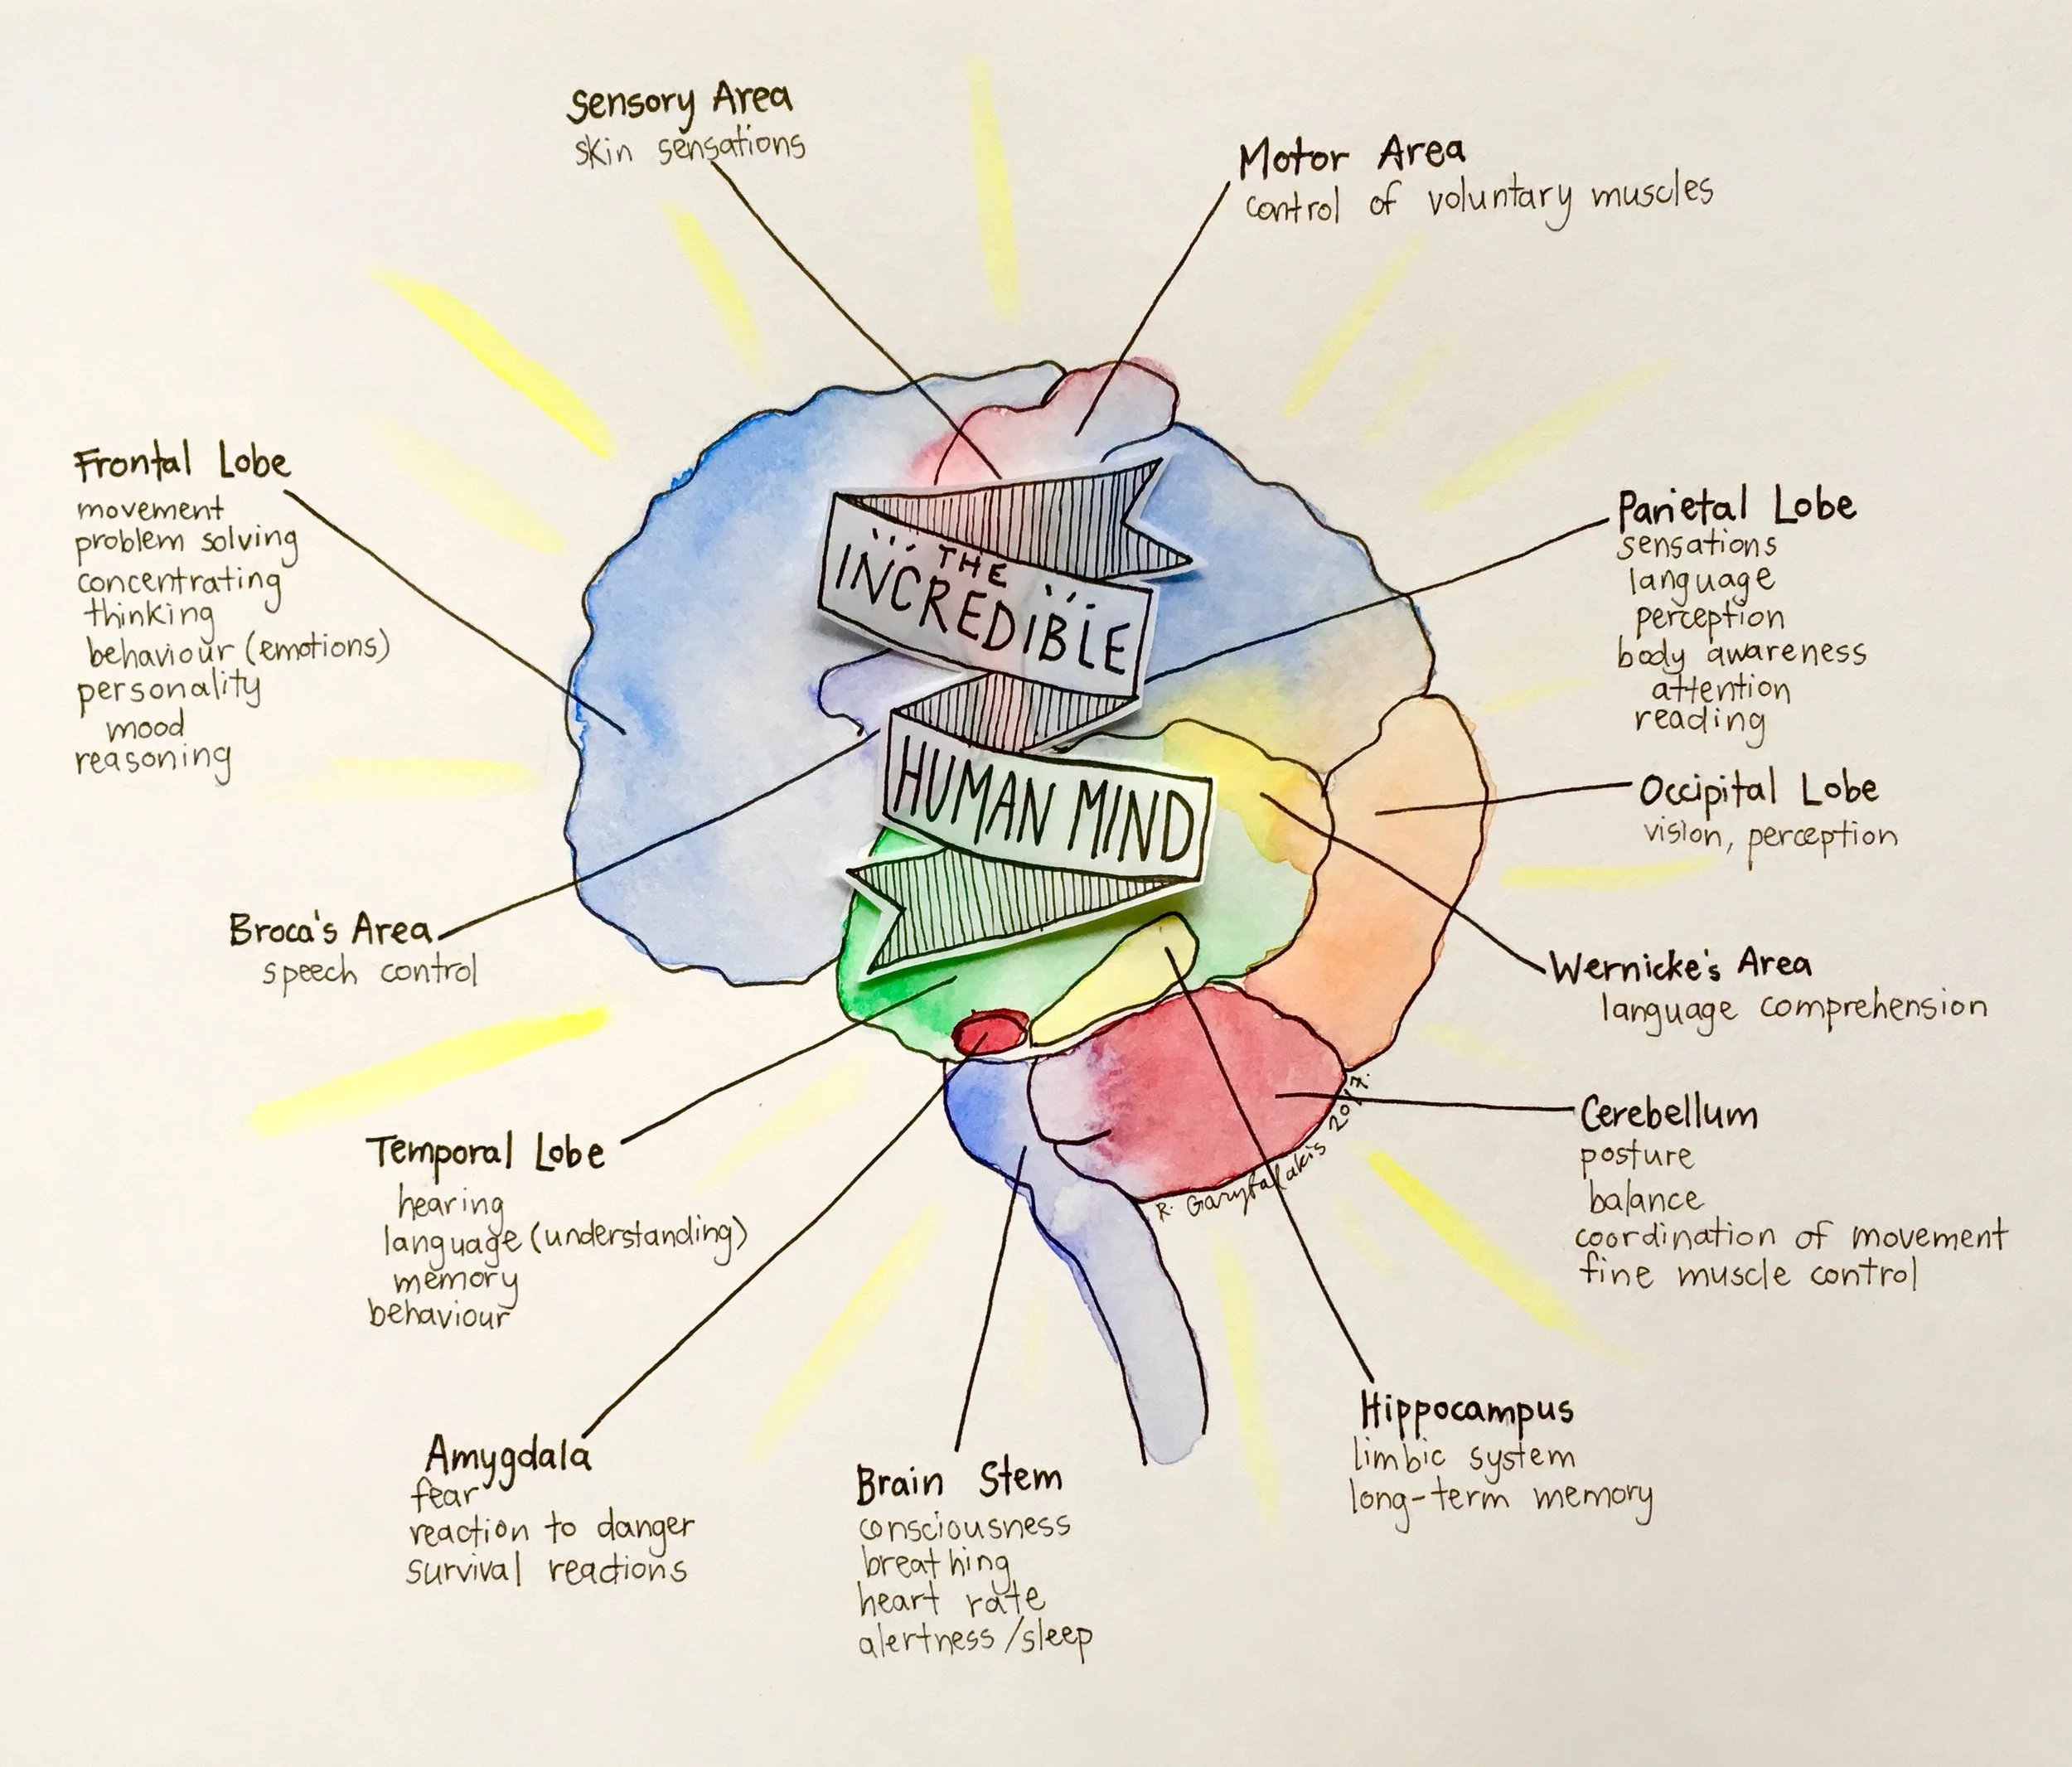 Sensory Area
skin sensations
Motor Area
control of voluntary muscles
Frontal Lobe
movement
problem solving
concentrating
thinking
behaviour (emotions)
personality
mood
reasoning
THE
INCREDIBLE
HUMAN MIND
Parietal Lobe
sensations
language
perception
body awareness
attention
reading
Occipital Lobe
vision, perception
Broca's Area
speech control
Wernicke's Area
language comprehension
Temporal Lobe
hearing
language (understanding)
memory
behaviour
Cerebellum
posture
balance
coordination of movement
fine muscle control
R. Garyfalakis 2017.
Amygdala
fear
reaction to danger
survival reactions
Brain Stem
consciousness
breathing
heart rate
alertness/sleep
Hippocampus
limbic system
long-term memory